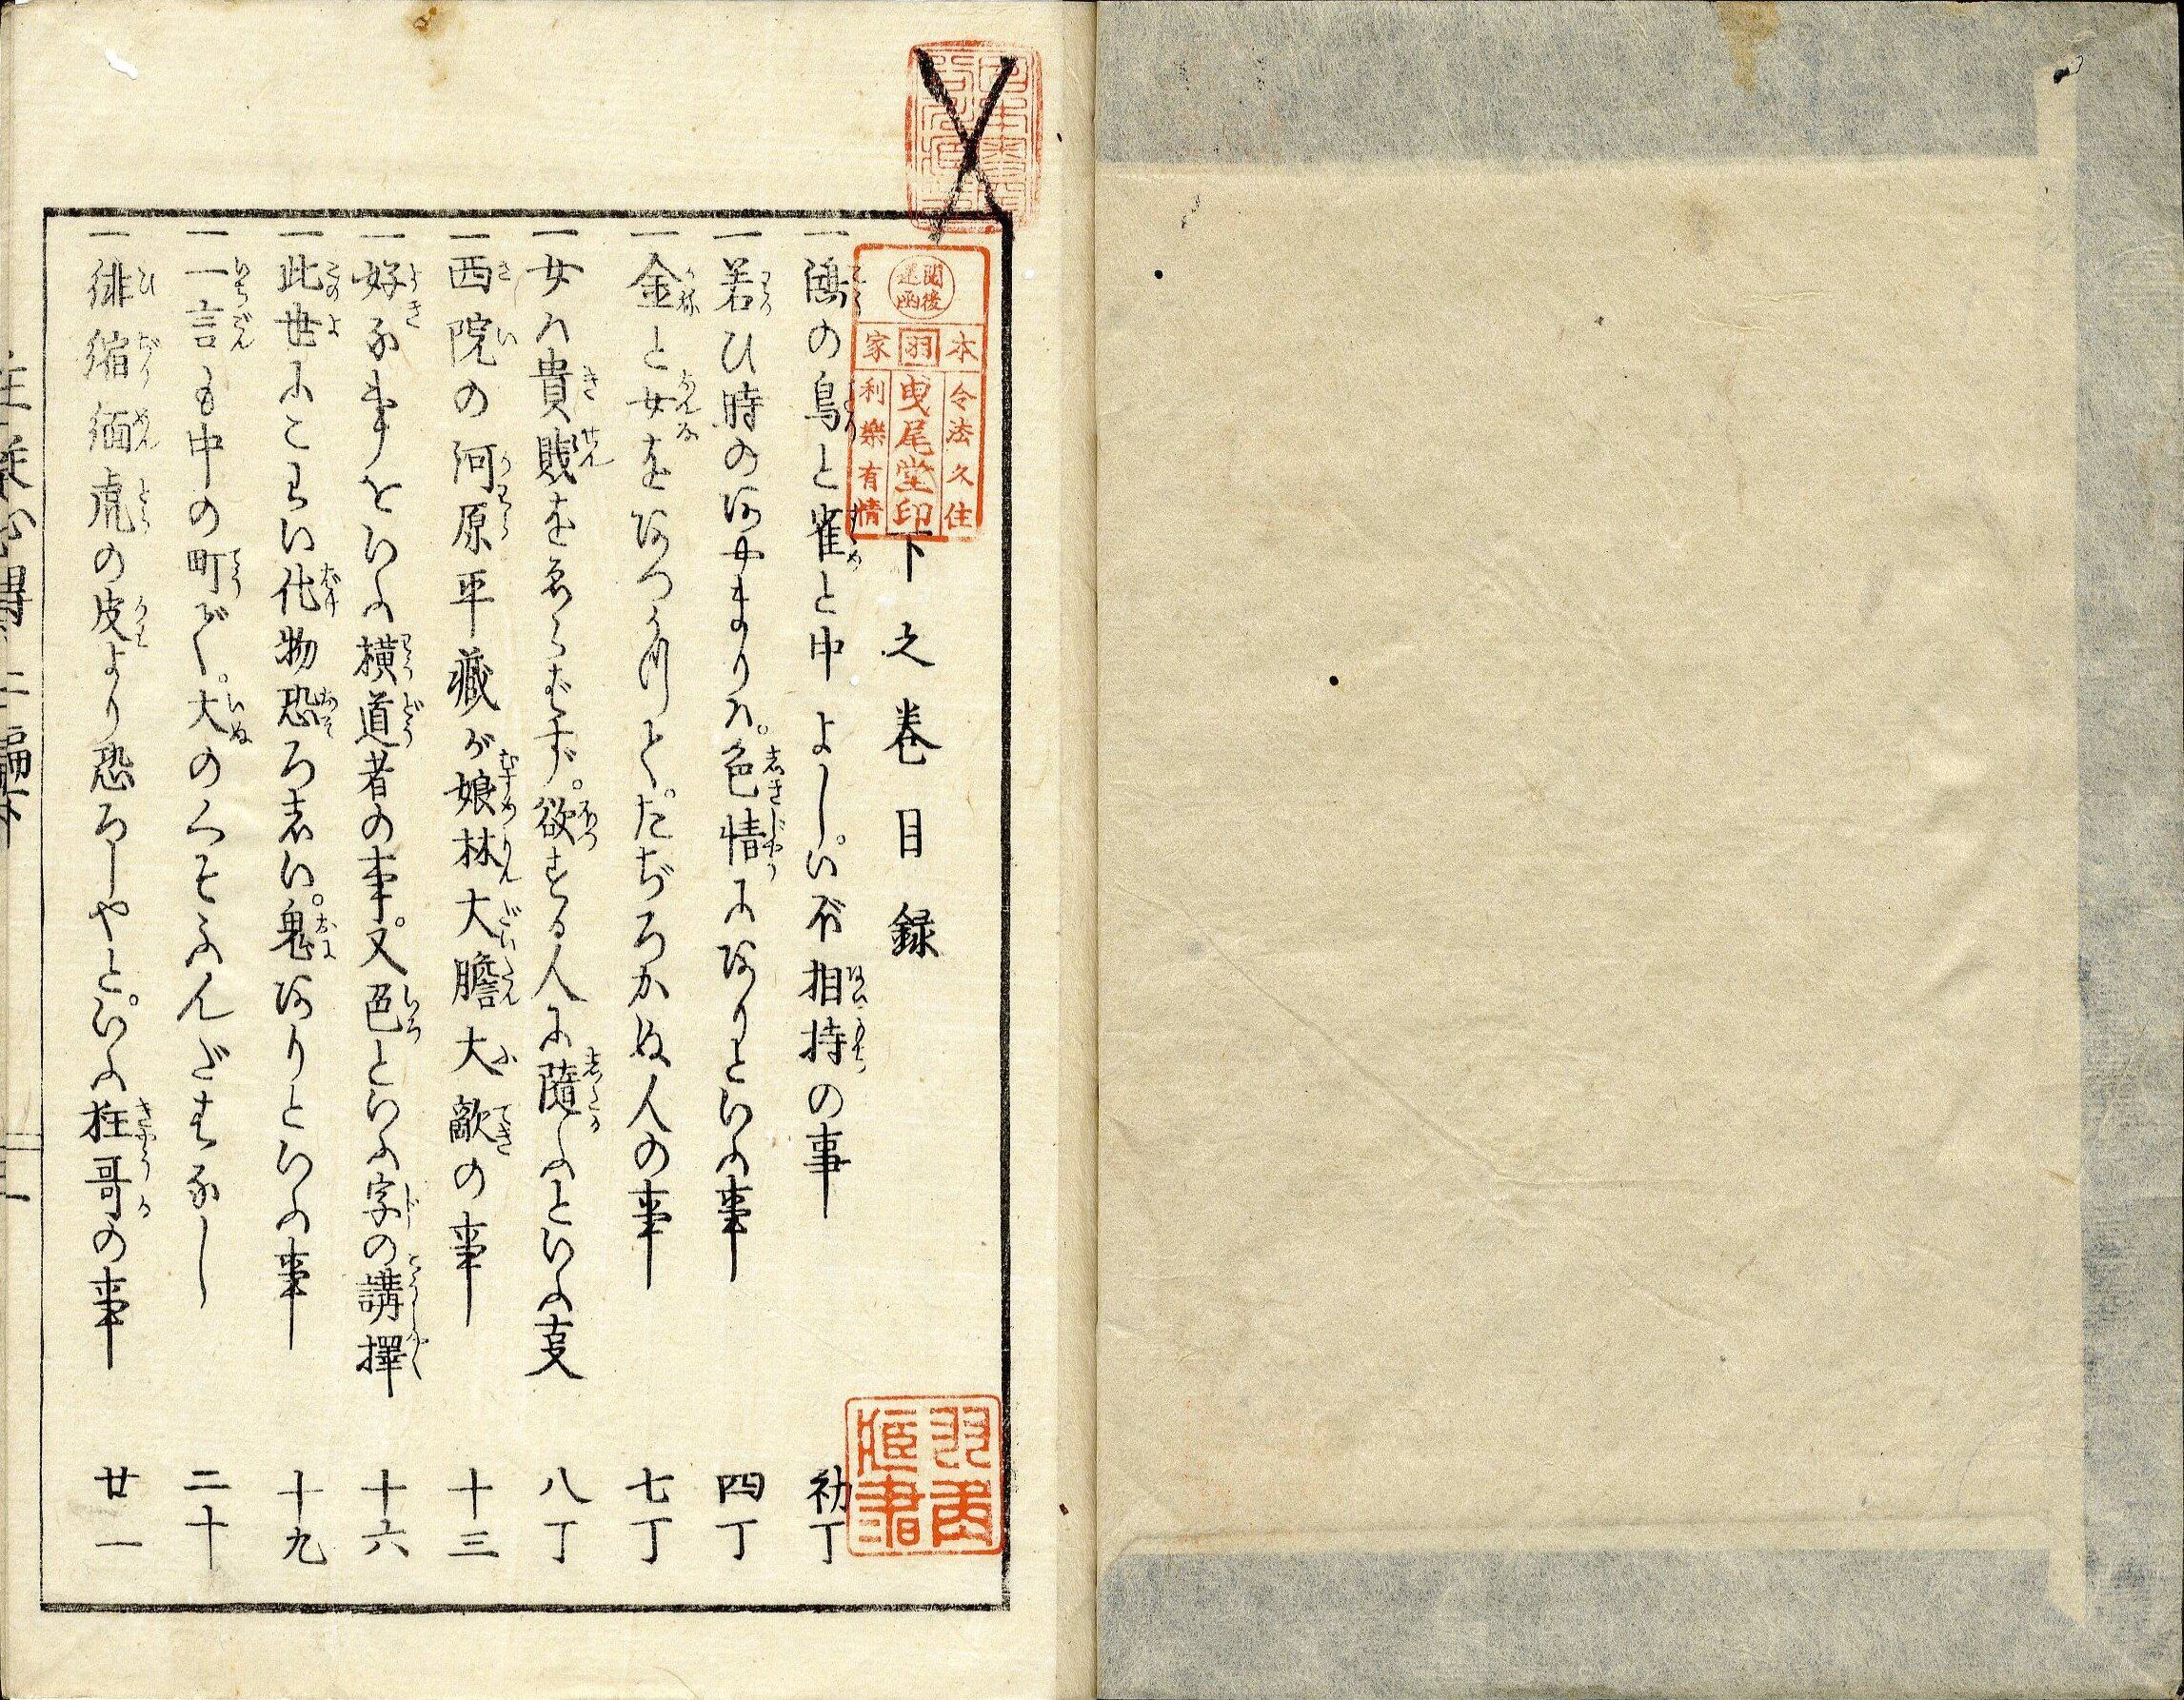 閲後還函
本羽家
令法久住
曳尾堂印
利樂有情
下之巻目録
一鴻の鳥と雀と中よし。いが相持の事 初丁
一若ひ時のあやまりハ。色情にありといふ事 四丁
一金と女をあつかつて。たぢろかぬ人の事 七丁
一女ハ貴賎をゑらまず。欲する人に隨ふといふ支 八丁
一西院の河原平藏が娘林大膽大敵の事 十三
一好な事をいふ横道者の事。又色といふ字の講擇 十六
一此世にこわい化物恐ろしい。鬼ありといふ事 十九
一一言も中の町で。犬のくそふんだはなし 二十
一緋縮緬虎の皮より恐ろしやと。いふ狂哥の事 廿一